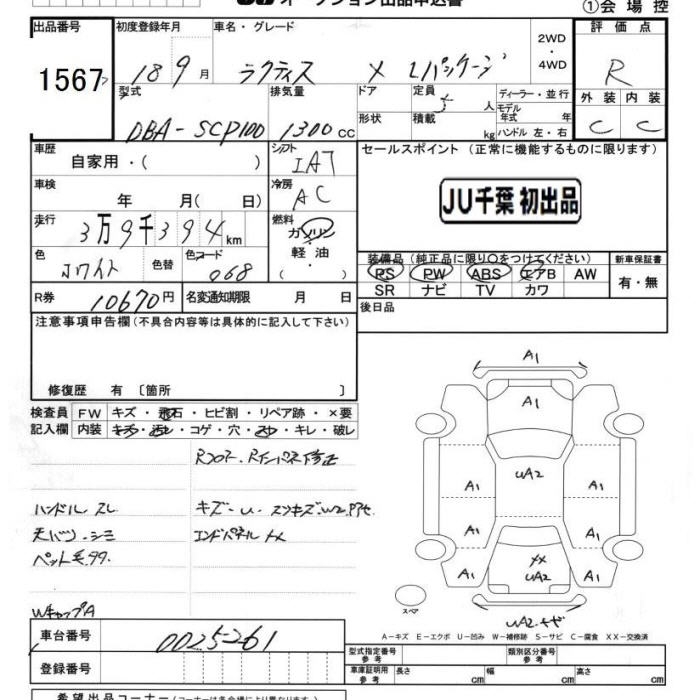 ①会 場 控
出品番号
1567
初度登録年月
18 9月
車名・グレード
ラクティス X Lパッケージ
2WD
・
4WD
評 価 点
R
外 装 内 装
C C
型式
DBA-SCP100
排気量
1300cc
ドア
定員
5人
ディーラー・並行
モデル
年式 年
形状
積載
kg
ハンドル 左・右
車歴
自家用・( )
シフト
IAT
セールスポイント (正常に機能するものに限ります)
車検
年 月( 日)
冷房
AC
JU千葉 初出品
走行
3万9千394km
燃料
ガソリン
・
軽 油
色
色替
色コード
068
装備品(純正品に限り○をつけてください)
PS PW ABS エアB AW
SR ナビ TV カワ
新車保証書
有・無
R券
10670円
名変通知期限 月 日
後日品
注意事項申告欄(不具合内容等は具体的に記入して下さい)
修復歴 有 〔箇所 〕
検査員
記入欄
FW キズ・飛石・ヒビ割・リペア跡・×要
内装 キズ・汚レ・コゲ・穴・スレ・キレ・破レ
ハンドル スレ
天バリ シミ
ペット毛 99.
WキャップA
エンドパネル XX
A1
A1
UA2
A1
A1
A1
A1
A1
A1
XX
UA2
スペア
A-キズ E-エクボ U-凹み W-補修跡 S-サビ C-腐食 XX-交換済
車台番号
0025261
登録番号
型式指定番号
参 考
類別区分番号
参 考
車庫証明用
参 考
長さ cm
幅 cm
高さ cm